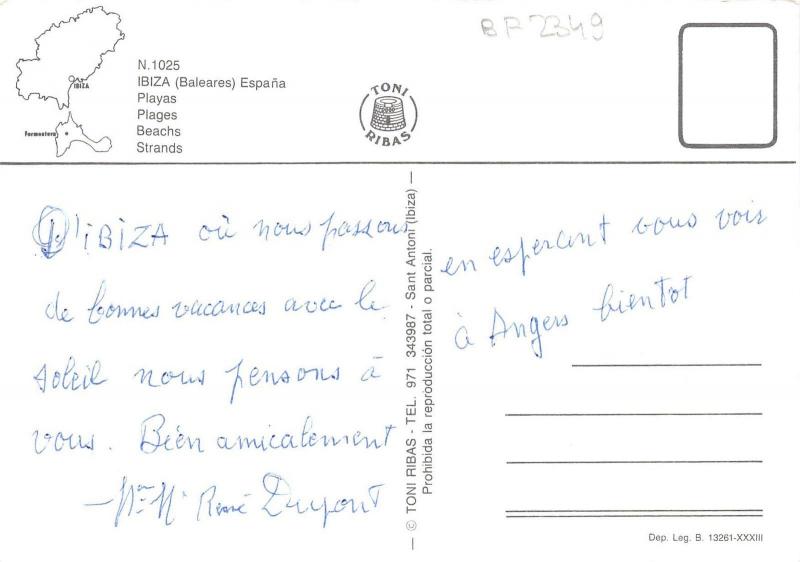 BP 2349
IBIZA
Formentera
N.1025
IBIZA (Baleares) España
Playas
Plages
Beachs
Strands
TONI
RIBAS
D'iBiZA où nous passons
de bonnes vacances avec le
soleil nous pensons à
vous. Bien amicalement
Mme Mr René Dupont
© TONI RIBAS - TEL. 971 343987 - Sant Antoni (Ibiza)
Prohibida la reproducción total o parcial.
en espercent vous voir
à Angers bientot
Dep. Leg. B. 13261-XXXIII